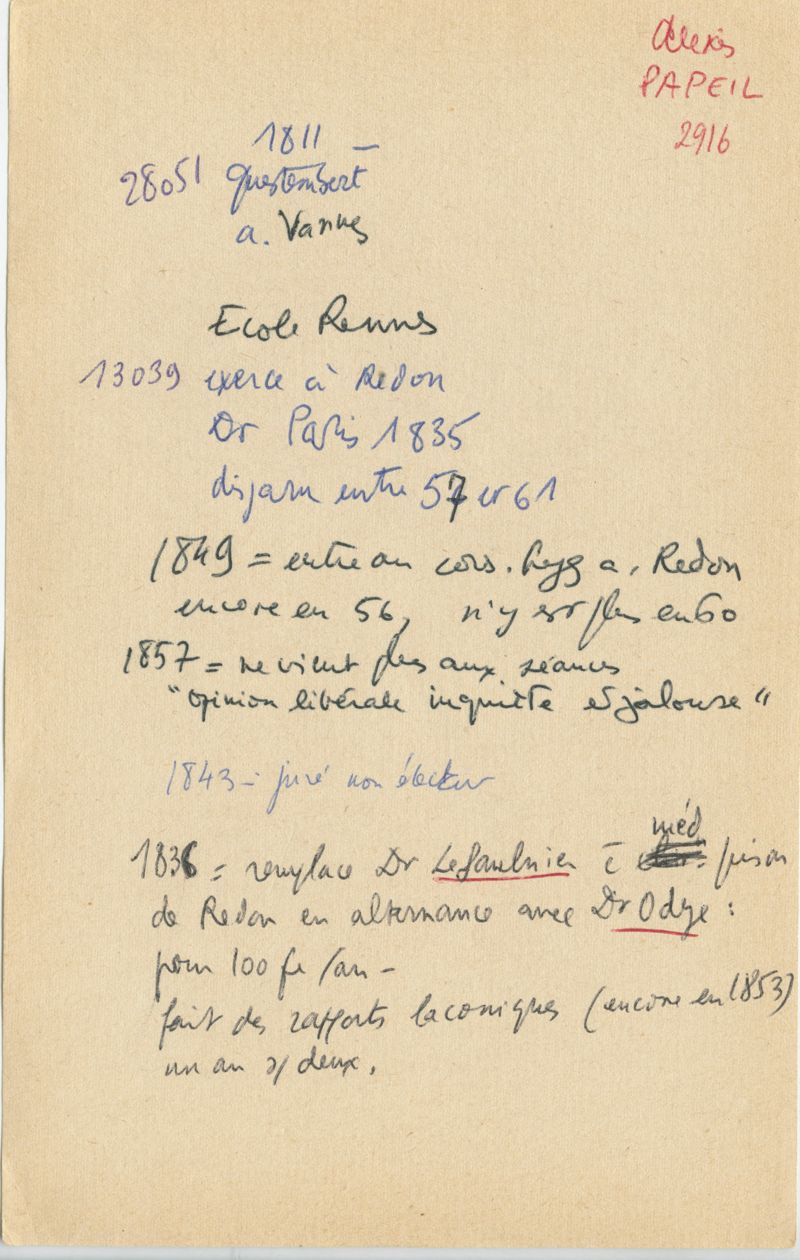 Alexis
PAPEIL
2916
1811 –
28051 Questembert
a. Vannes
Ecole Rennes
13039 exerce à Redon
Dr Paris 1835
disparu entre 57 et 61
1849 = entre au cons. hyg a. Redon
encore en 56, n'y est plus en 60
1857 = ne vient plus aux séances
"opinion libérale inquiète et jalouse"
1843 – juré non électeur
méd
1836 = remplace Dr LeSaulnier c̄ prison
de Redon en alternance avec Dr Odye :
pour 100 fr /an –
fait des rapports laconiques (encore en 1853)
un an s/ deux.